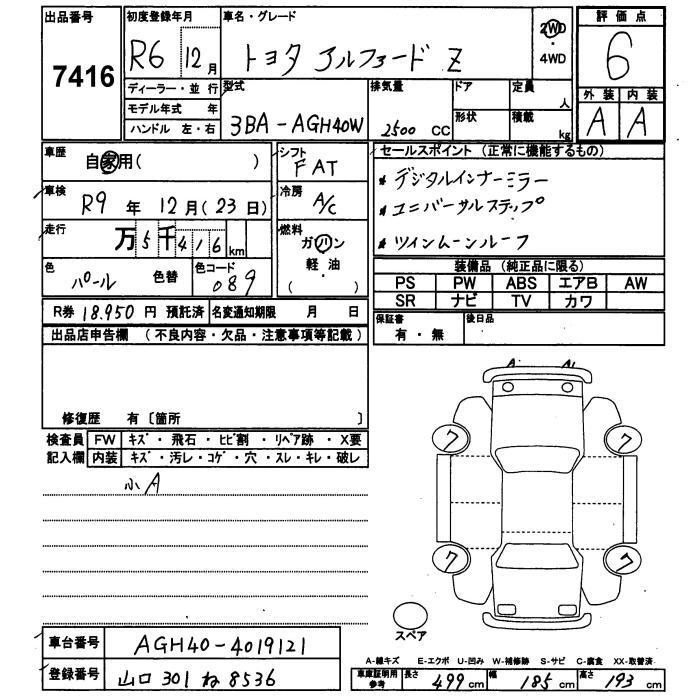 出品番号 7416
初度登録年月 R6 12月
車名・グレード トヨタ アルファード Z
2WD ・ 4WD
評価点 6
外装 A 内装 A
ディーラー・並行
モデル年式 年
ハンドル 左・右
型式 3BA-AGH40W
排気量 2500 CC
ドア 形状
定員 人
積載 kg
車歴 自家用( )
シフト FAT
車検 R9 年 12月(23日)
冷房 A/C
走行 万5千416km
燃料 ガソリン 軽・油 ( )
色 パール 色替
色コード 089
R券 18.950 円 預託済 名変通知期限 月 日
セールスポイント (正常に機能するもの)
* デジタルインナーミラー
* ユニバーサルステップ
* ツインムーンルーフ
装備品 (純正品に限る)
PS PW ABS エアB AW
SR ナビ TV カワ
保証書 有・無
後日品
出品店申告欄 (不良内容・欠品・注意事項等記載)
修復歴 有〔箇所 〕
検査員 FW キズ・飛石・ヒビ割・リペア跡・X要
記入欄 内装 キズ・汚レ・コゲ・穴・スレ・キレ・破レ
小A
A A1
ワ ワ
ワ ワ
スペア
車台番号 AGH40-4019121
登録番号 山口 301 ね 8536
A-線キズ E-エクボ U-凹み W-補修跡 S-サビ C-腐食 XX-取替済
車庫証明用参考 長さ 499cm 幅 185cm 高さ 193cm